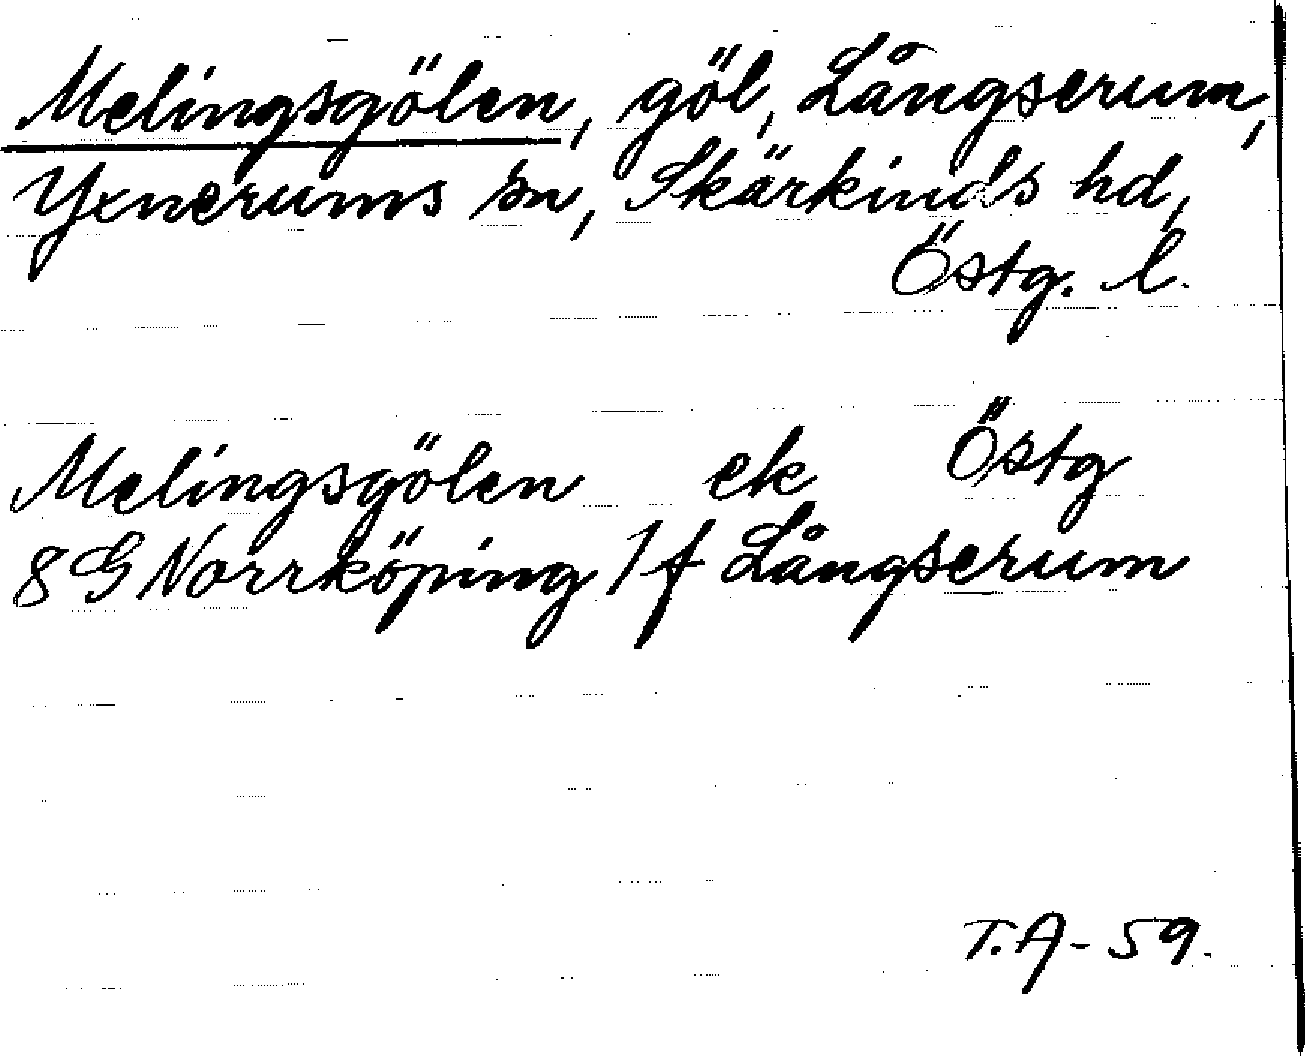 Melingsgölen, göl, Långserum,
Yxnerums sn, Skärkinds hd,
Östg. l.
Melingsgölen ek Östg
8G Norrköping 1 f Långserum
T.A-59.